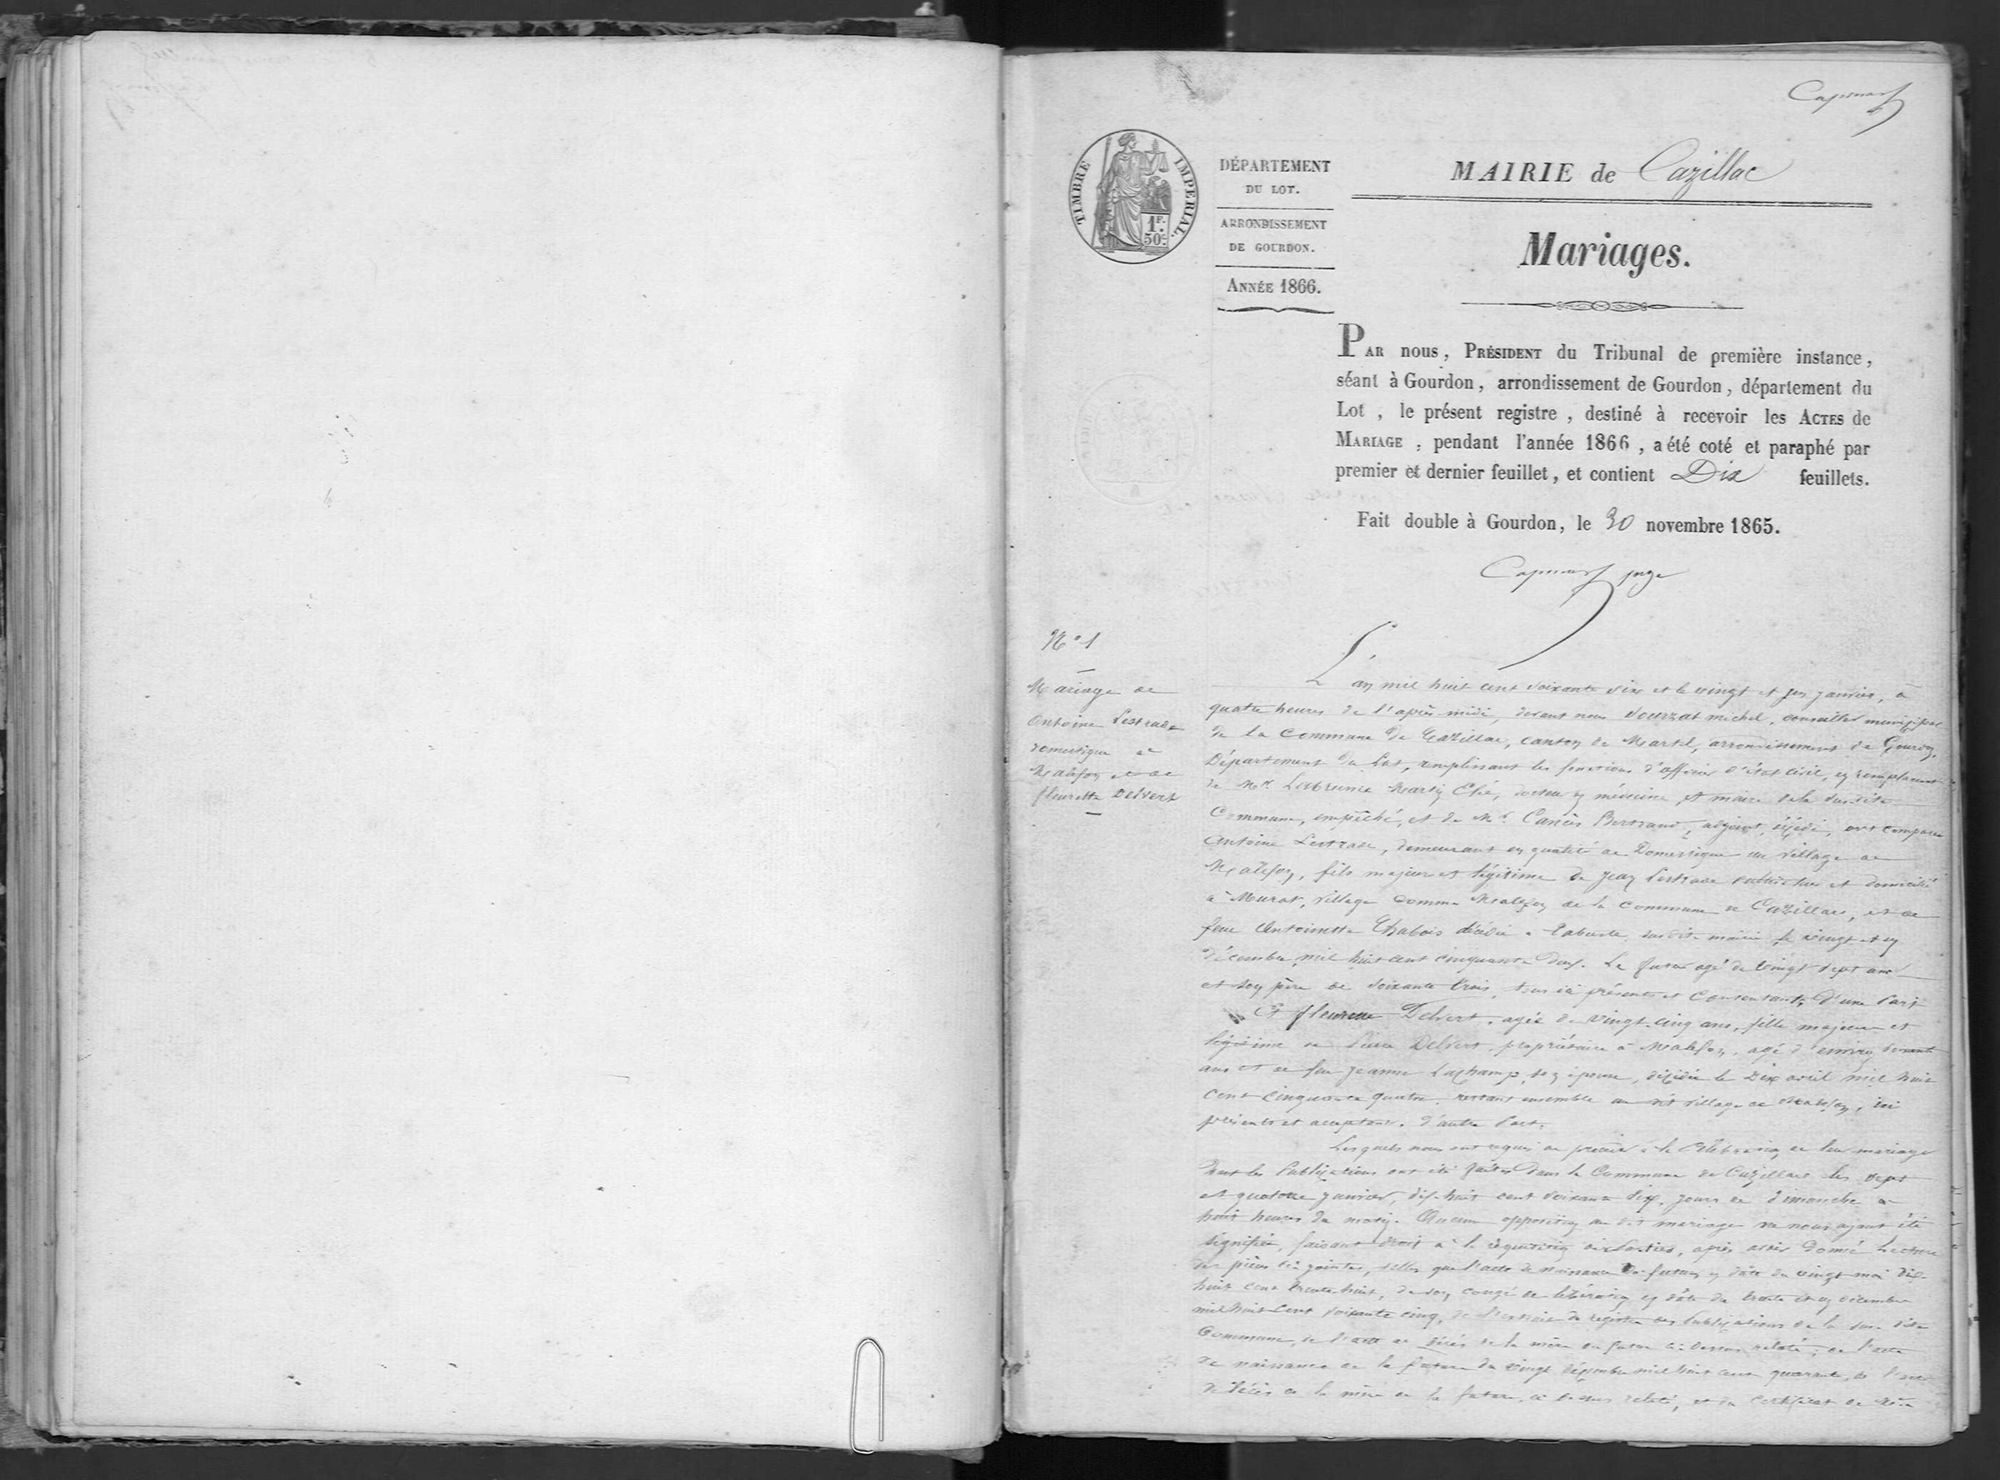 Capmas
TIMBRE IMPÉRIAL.
1F.
50C.
DÉPARTEMENT
DU LOT.
ARRONDISSEMENT
DE GOURDON.
ANNÉE 1866.
MAIRIE de Cazillac
Mariages.
PAR nous, PRÉSIDENT du Tribunal de première instance,
séant à Gourdon, arrondissement de Gourdon, département du
Lot, le présent registre, destiné à recevoir les ACTES de
MARIAGE, pendant l'année 1866, a été coté et paraphé par
premier et dernier feuillet, et contient Dix feuillets.
Fait double à Gourdon, le 30 novembre 1865.
Capmas juge
N° 1
Mariage de
Antoine Lestrade
domestique à
Malefon et de
fleurette Delvert
L'an mil huit cent soixante six et le vingt et janvier, à
quatre heures de l'après-midi, devant nous Vourzat michel, conseiller municipal
de la Commune de Cazillac, canton de Martel, arrondissement de Gourdon,
Département du Lot, remplissant les fonctions d'officier d'état civil, en remplacement
de Mr. Lerbrunie Martin docteur en médecine, et maire de la susdite
Commune, empêché, et de Mr. Bertrand, adjoint, ont comparu
Antoine Lestrade, demeurant en qualité de Domestique au village de
Malefon, fils majeur et légitime de Jean Lestrade et domicilié
à Murat, village comme Malefon de la commune de Cazillac, et de
feue Antoinette Chabois susdite mairie le vingt et un
décembre mil huit cent cinquante deux. Le futur agé de vingt sept ans
et son père de soixante trois, tous ici présents et consentants, d'une Part
Et fleurette Delvert, agée de vingt-cinq ans, fille majeure et
légitime de Pierre Delvert, propriétaire à Malefon, agé d'environ soixante
ans et de feu Jeanne Lachamp, son épouse, décédée le Dix avril mil huit
cent cinquante quatre, restant ensemble au dit village de Malefon, ici
présents et acceptant, d'autre Part.
Lesquels nous ont requis de procéder à la célébration de leur mariage
dont les Publications ont été faites dans la Commune de Cazillac les sept
et quatorze janvier, dix-huit cent soixante six, jours de dimanche à
huit heures du matin. Aucune opposition au dit mariage ne nous ayant été
signifiée, faisant droit à la réquisition des Parties, après avoir donné lecture
des pièces ci-jointes, telles que l'acte de naissance du futur en date du vingt mai dix-
huit cent trente-huit, de son congé de libération en date du trente et un décembre
mil huit cent soixante cinq, de l'extrait du registre des Publications de la sus-dite
Commune, de l'acte de décès de la mère du futur ci-dessus relaté, de l'acte
de naissance de la future du vingt décembre mil huit cent quarante, de l'acte
de décès de la mère de la future, ci-dessus relaté, et du certificat de